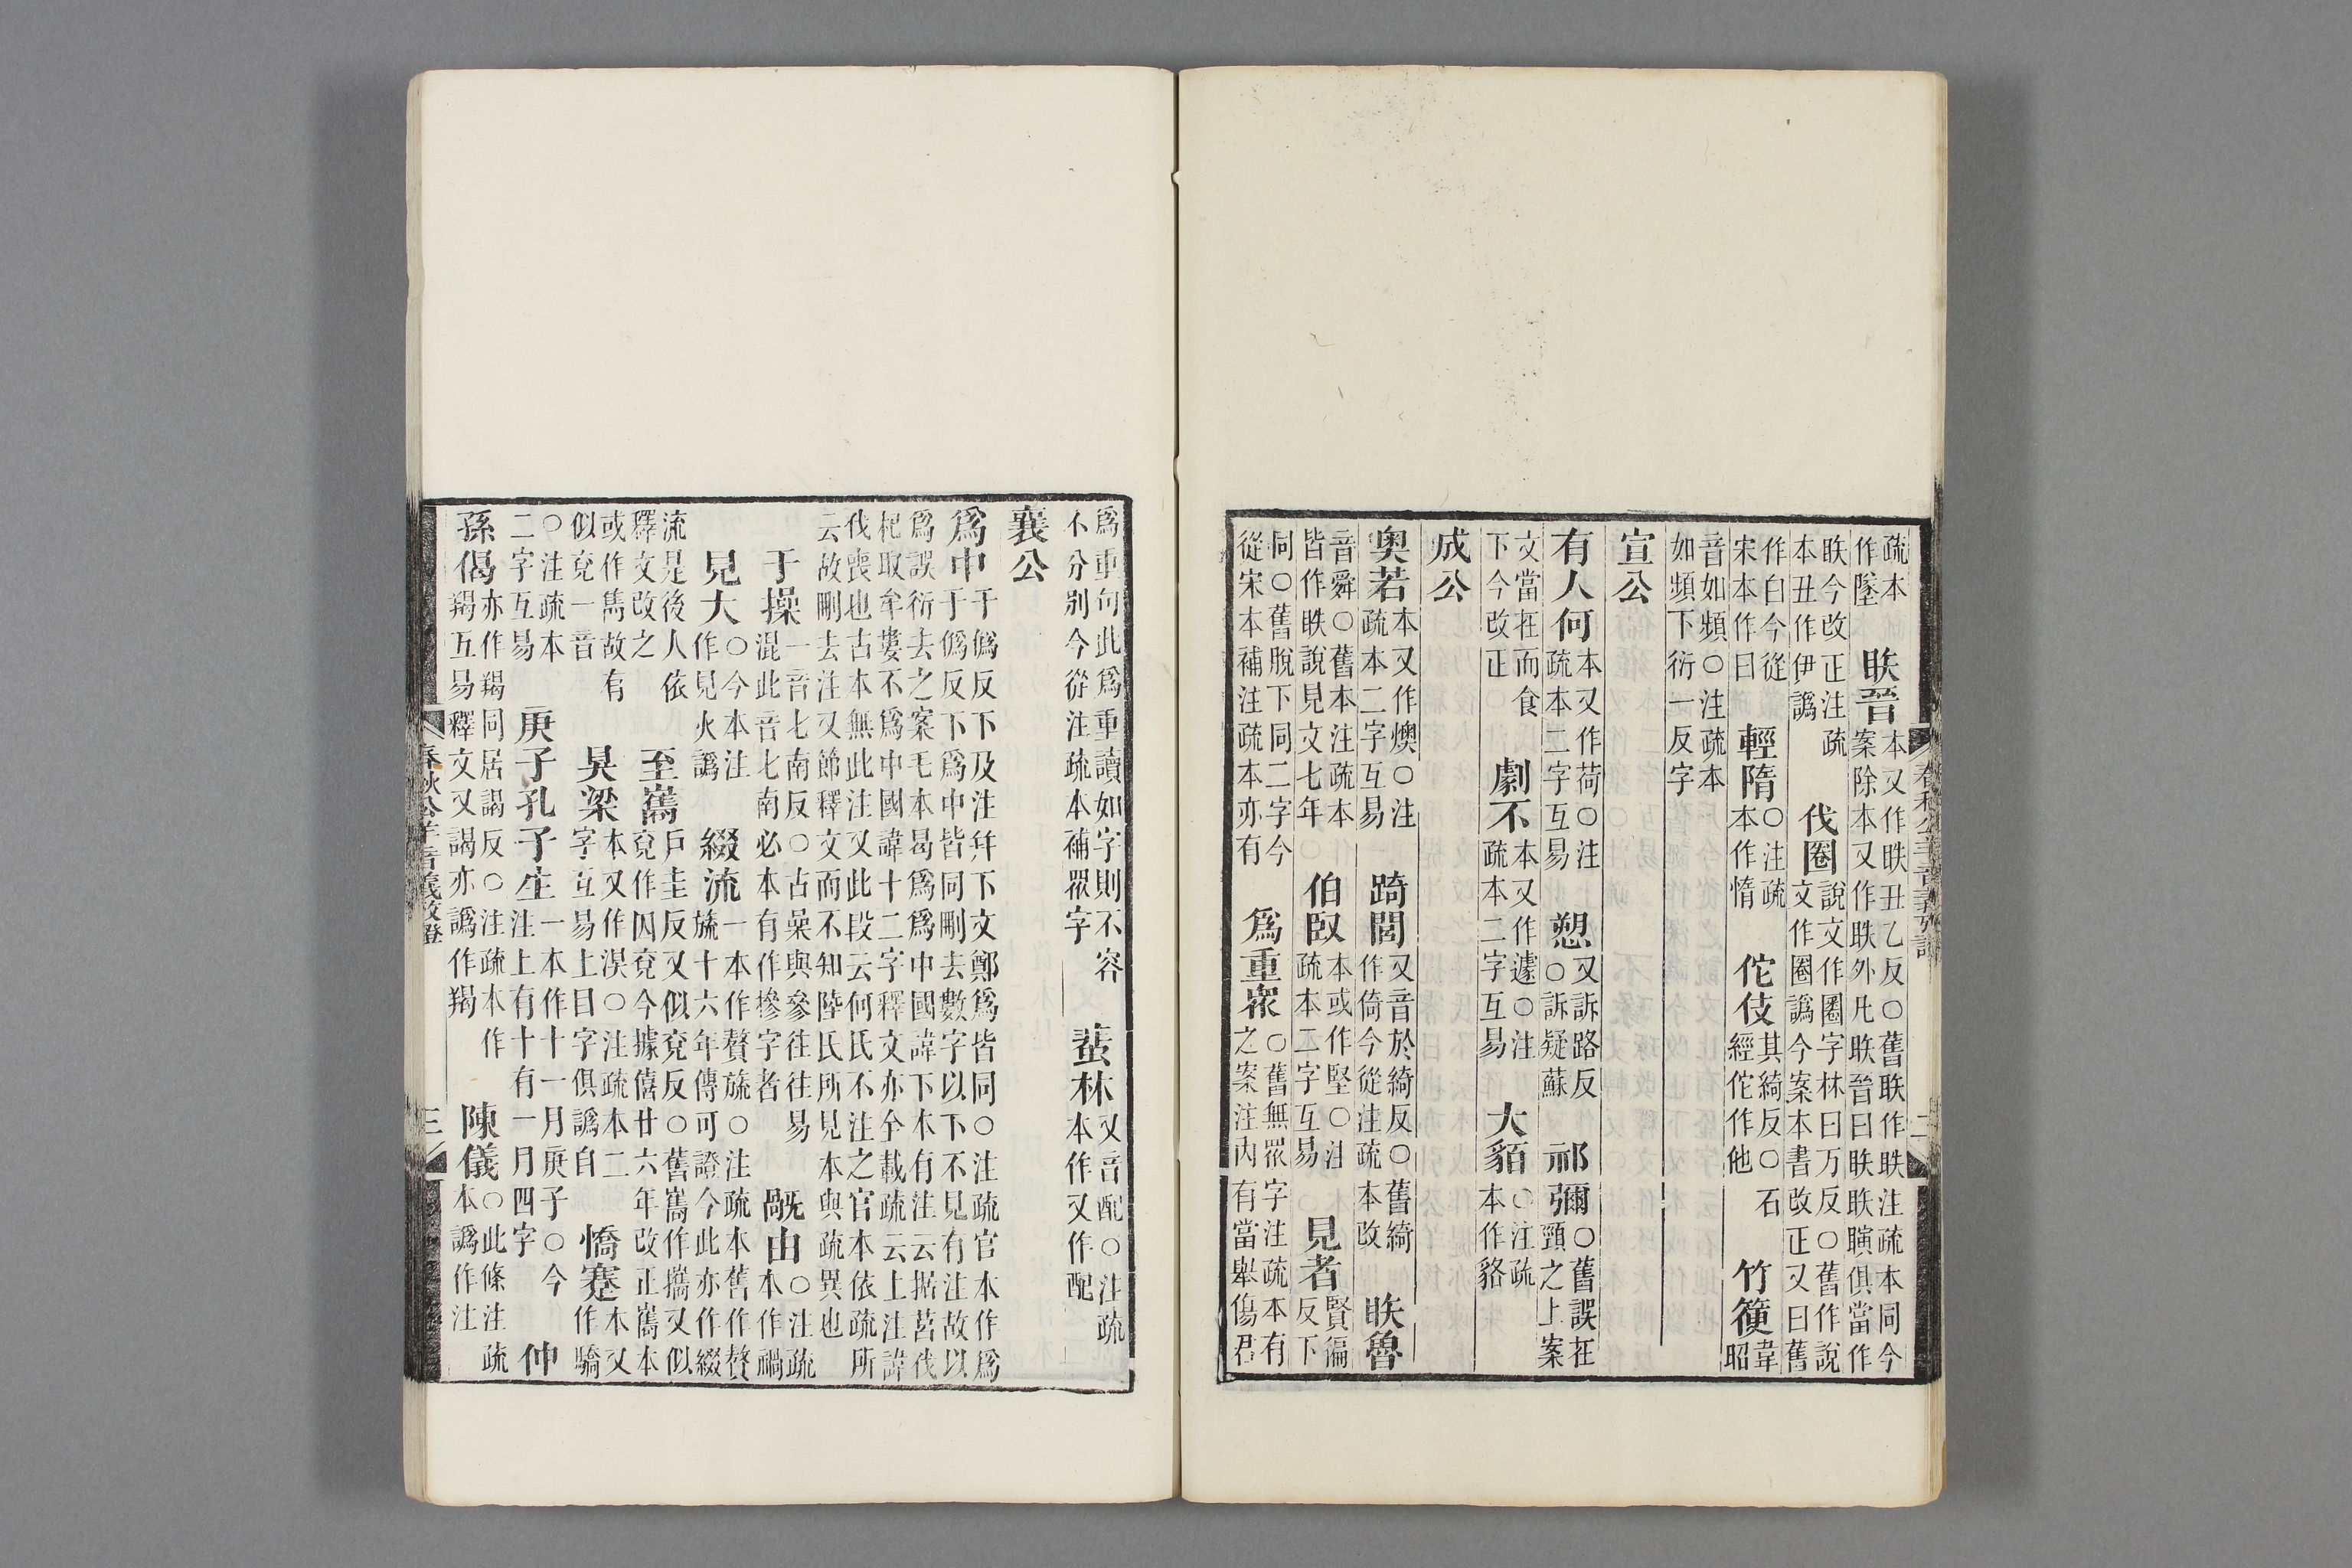 疏本作墜　眣晉本又作昳丑乙反○舊眣作昳注疏本同今案除本又作昳外凡眣晉曰眣眣瞚俱當作
眣今改正注疏本丑作伊譌　伐圈說文作圏字林曰万反○舊作說文作圈譌今案本書改正又曰舊
作白今從宋本作曰　輕隋○注疏本作惰　佗伎其綺反○石經佗作他　竹箯韋昭
音如頻○注疏本如頻下衍一反字
宣公
有人何本又作荷○注疏本二字互易　愬又訴路反○訴疑蘇　祁彌○舊誤在頸之上案
文當在而食下今改正　劇不本又作遽○注疏本二字互易　大貊○注疏本作貉
成公
奧若本又作燠○注疏本二字互易　踦閭又音於綺反○舊綺作倚今從注疏本改　眣魯
音舜○舊本注疏本皆作昳說見文七年　伯臤本或作堅○注疏本二字互易　見者賢徧反下
同○舊脫下同二字今從宋本補注疏本亦有　爲重衆○舊無眾字注疏本有之案注內有當舉傷君
春秋公羊音義攷證　二
爲重句此爲重讀如字則不容不分別今從注疏本補眾字　蜚林又音配○注疏本作又作配
襄公
爲中于僞反下及注幷下文鄭爲皆同○注疏官本作爲于僞反下爲中皆同刪去數字以下不見有注故以
爲誤衍去之案毛本曷爲爲中國諱下本有注云据莒伐杞取牟婁不爲中國諱十二字釋文亦全載疏云上注諱
伐喪也古本無此注又此段云何氏不注之官本依疏所云故刪去注又節釋文而不知陸氏所見本與疏異也
于操一音七南反○古喿與參往往易混此音七南必本有作摻字者　厩由○注疏本作禍
見大○今本注作見火譌　綴流一本作贅旒○注疏本舊作贅旒十六年傳可證今此亦作綴
流是後人依釋文改之　至巂戶圭反又似兗反○舊巂作攜又似兗作囚兗今據僖廿六年改正巂本
或作雋故有似兗一音　昊梁本又作湨○注疏本二字互易上曰字俱譌自　憍蹇本又作驕
○注疏本二字互易　庚子孔子生一本作十一月庚子○今注上有十有一月四字　仲
孫偈亦作羯同居謁反○注疏本作羯互易釋文又謁亦譌作羯　陳儀○此條注疏本譌作注
春秋公羊音義攷證　三